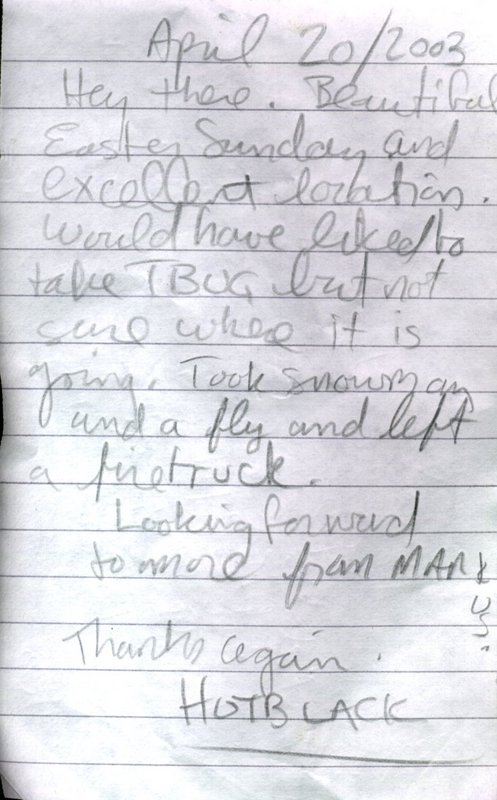 April 20/2003
Hey there. Beautiful
Easter Sunday and
excellent location.
Would have liked to
take TBUG but not
sure where it is
going. Took snowman
and a fly and left
a firetruck.
Looking forward
to more from MARKUS.
Thanks again.
HOTBLACK